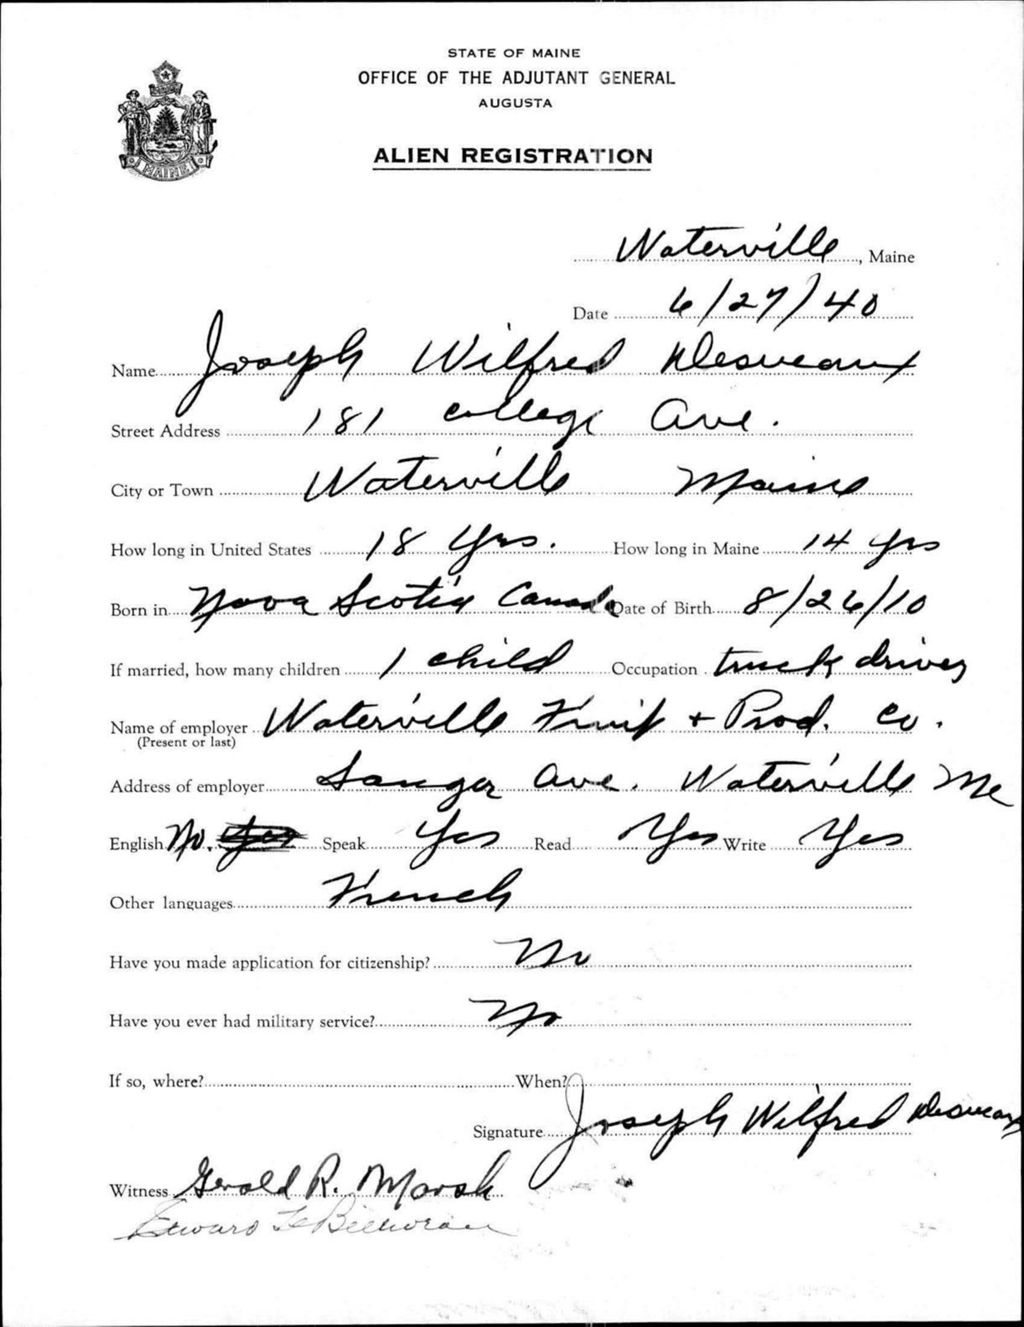 STATE OF MAINE
OFFICE OF THE ADJUTANT GENERAL
AUGUSTA
ALIEN REGISTRATION
MAINE
Waterville, Maine
Date 6/27/40
Name Joseph Wilfred Desveaux
Street Address 181 College Ave.
City or Town Waterville Maine
How long in United States 18 Yrs. How long in Maine 14 yrs
Born in Nova Scotia Canada Date of Birth 8/26/10
If married, how many children 1 child Occupation truck driver
Name of employer Waterville Fruit + Prod. Co.
(Present or last)
Address of employer Sanger Ave. Waterville Me
English No. Yes Speak Yes Read Yes Write Yes
Other languages French
Have you made application for citizenship? No
Have you ever had military service? No
If so, where? When?
Signature Joseph Wilfred Desveaux
Witness Gerald R. Marsh
Edward